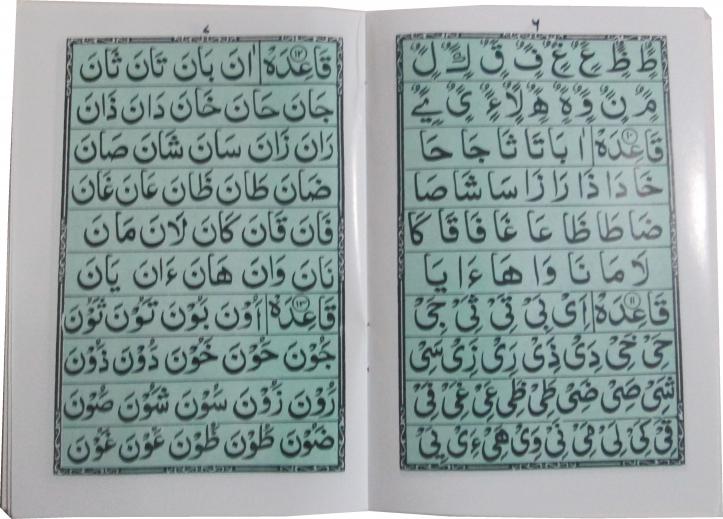 ٦
ط ظ ع غ ف ق ك ل
م ن و ه ه لا ء ي ے
قَاعِدَهْ ١٠ اٰ بَا تَا ثَا جَا حَا
خَا دَا ذَا رَا زَا سَا شَا صَا
ضَا طَا ظَا عَا غَا فَا قَا كَا
لَا مَا نَا وَا هَا ءَا يَا
قَاعِدَهْ ١١ اِىْ بِىْ تِىْ ثِىْ جِىْ
حِىْ خِىْ دِىْ ذِىْ رِىْ زِىْ سِىْ
شِىْ صِىْ ضِىْ طِىْ ظِىْ عِىْ غِىْ فِىْ
قِىْ كِىْ لِىْ مِىْ نِىْ وِىْ هِىْ ءِىْ يِىْ
قَاعِدَهْ ١٢ اٰنَ بَانَ تَانَ ثَانَ
جَانَ حَانَ خَانَ دَانَ ذَانَ
رَانَ زَانَ سَانَ شَانَ صَانَ
ضَانَ طَانَ ظَانَ عَانَ غَانَ
فَانَ قَانَ كَانَ لَانَ مَانَ
نَانَ وَانَ هَانَ ءَانَ يَانَ
قَاعِدَهْ ١٣ اُوْنَ بُوْنَ تُوْنَ ثُوْنَ
جُوْنَ حُوْنَ خُوْنَ دُوْنَ ذُوْنَ
رُوْنَ زُوْنَ سُوْنَ شُوْنَ صُوْنَ
ضُوْنَ طُوْنَ ظُوْنَ عُوْنَ غُوْنَ